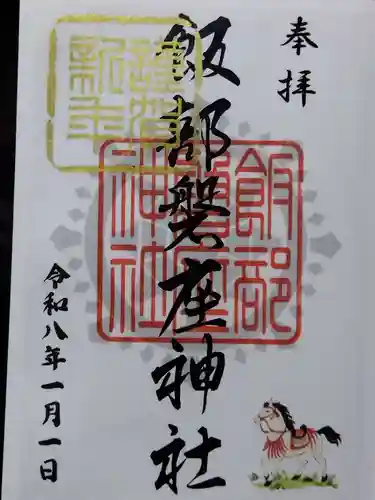 奉拝
飯部磐座神社
飯部磐座神社
謹賀新年
令和八年一月一日